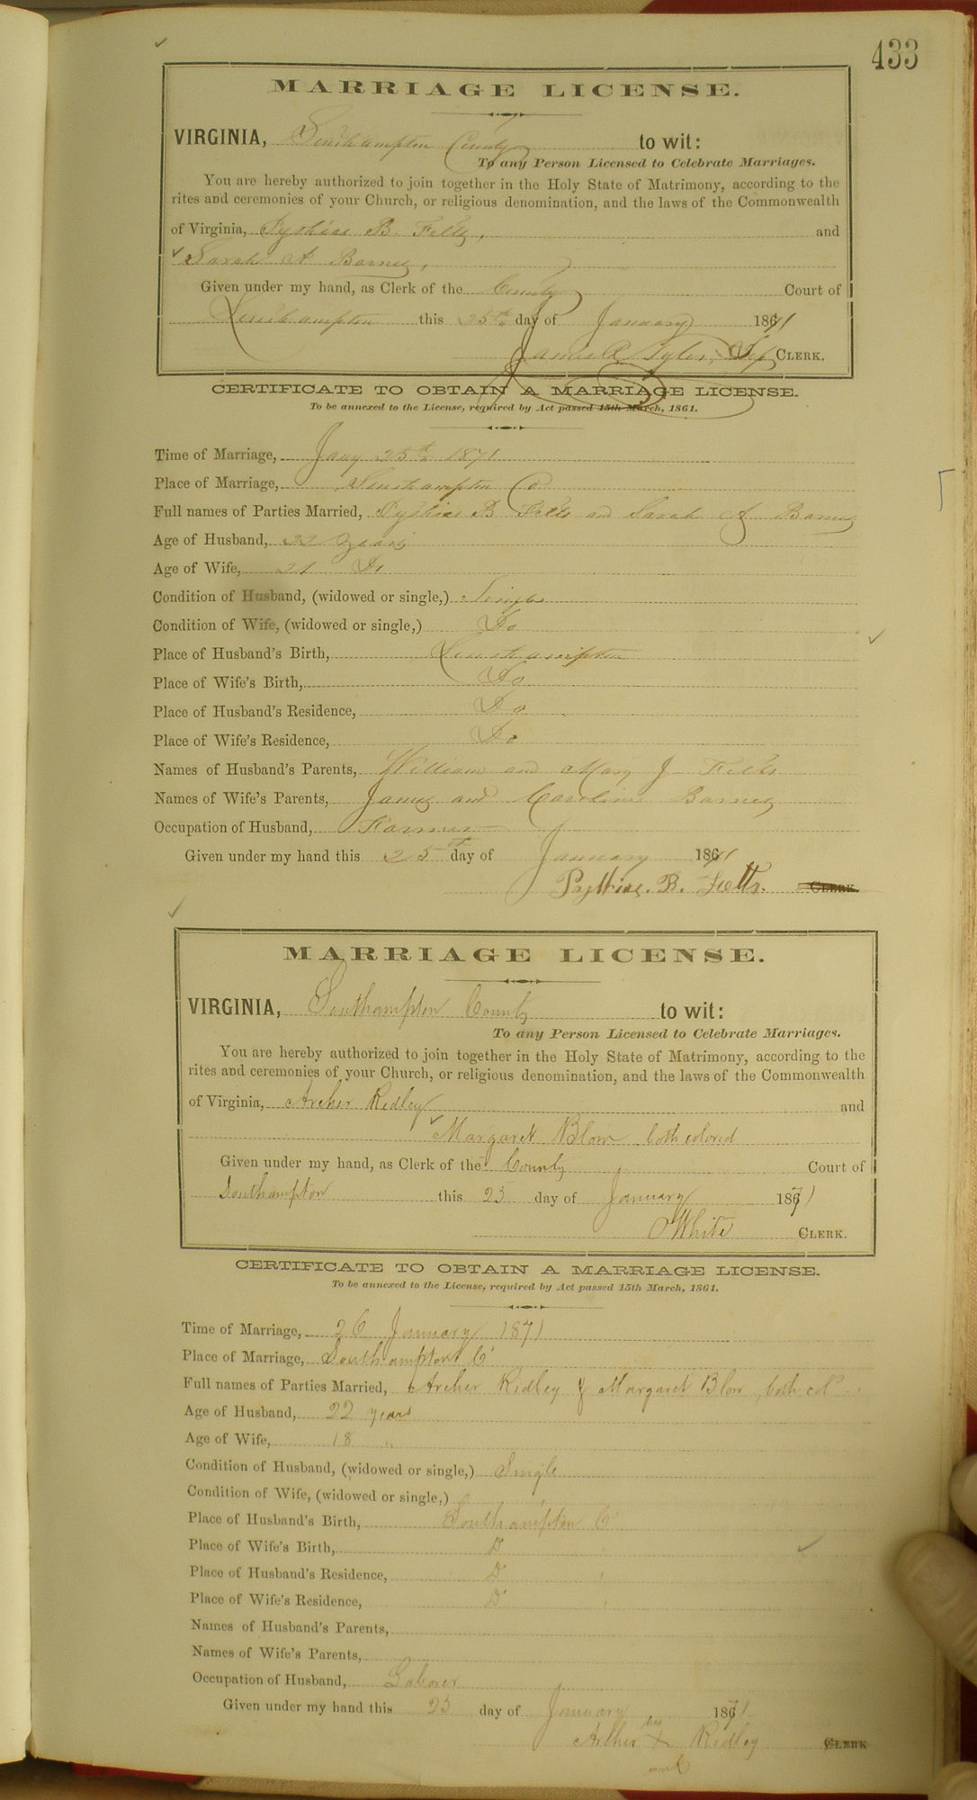 433
MARRIAGE LICENSE.
VIRGINIA, Southampton County to wit:
To any Person Licensed to Celebrate Marriages.
You are hereby authorized to join together in the Holy State of Matrimony, according to the
rites and ceremonies of your Church, or religious denomination, and the laws of the Commonwealth
of Virginia, B. Felts, and
Sarah A Barnes,
Given under my hand, as Clerk of the County Court of
Southampton this 25th day of January 1871
James R Tyler, Dep CLERK.
CERTIFICATE TO OBTAIN A MARRIAGE LICENSE.
To be annexed to the License, required by Act passed 15th March, 1861.
Time of Marriage, Jany 25th 1871
Place of Marriage, Southampton Co
Full names of Parties Married, B Felts and Sarah A Barnes
Age of Husband, 22 years
Age of Wife, 21 Do
Condition of Husband, (widowed or single,) Single
Condition of Wife, (widowed or single,) Do
Place of Husband's Birth, Southampton
Place of Wife's Birth, Do
Place of Husband's Residence, Do
Place of Wife's Residence, Do
Names of Husband's Parents, William and Mary J Felts
Names of Wife's Parents, James and Caroline Barnes
Occupation of Husband, Farmer
Given under my hand this 25th day of January 1871
B. Felts. CLERK
MARRIAGE LICENSE.
VIRGINIA, Southampton County to wit:
To any Person Licensed to Celebrate Marriages.
You are hereby authorized to join together in the Holy State of Matrimony, according to the
rites and ceremonies of your Church, or religious denomination, and the laws of the Commonwealth
of Virginia, Archer Ridley and
Margaret Blow both colored
Given under my hand, as Clerk of the County Court of
Southampton this 25 day of January 1871
O White CLERK.
CERTIFICATE TO OBTAIN A MARRIAGE LICENSE.
To be annexed to the License, required by Act passed 15th March, 1861.
Time of Marriage, 26 January 1871
Place of Marriage, Southampton Co
Full names of Parties Married, Archer Ridley & Margaret Blow, both cold
Age of Husband, 22 years
Age of Wife, 18 "
Condition of Husband, (widowed or single,) Single
Condition of Wife, (widowed or single,)
Place of Husband's Birth, Southampton Co
Place of Wife's Birth, Do
Place of Husband's Residence, Do
Place of Wife's Residence, Do
Names of Husband's Parents,
Names of Wife's Parents,
Occupation of Husband, Laborer
Given under my hand this 25 day of January 1871
his
Archer X Ridley CLERK
mark